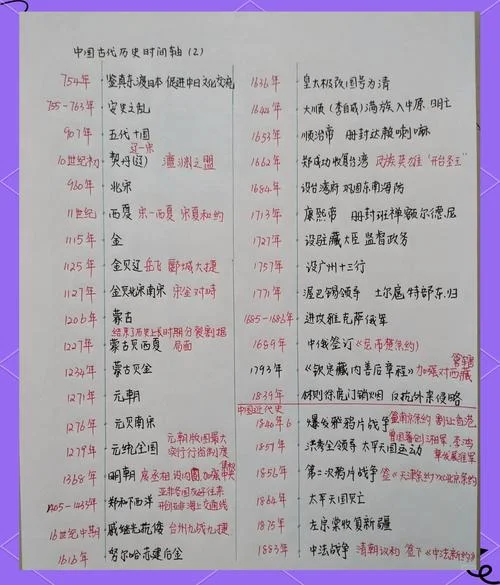 中国古代历史时间轴（2）
754年 鉴真东渡日本 促进中日文化交流
755-763年 安史之乱
907年 五代十国
辽-宋
10世纪初 契丹(辽) 澶渊之盟
960年 北宋
11世纪 西夏 宋-西夏 宋夏和约
1115年 金
1125年 金灭辽 岳飞 郾城大捷
1127年 金灭北宋 南宋 宋金对峙
1206年 蒙古
结束了历史上长时期分裂割据
1227年 蒙古灭西夏 局面
1234年 蒙古灭金
1271年 元朝
1276年 元灭南宋
1279年 元统一全国 元朝版图最大
实行行省制度
1368年 明朝 废丞相 设内阁 加强中央
集权
亚非各国友好往来
1405-1433年 郑和下西洋 开创非海上交通线
16世纪中期 戚继光抗倭 台州九战九捷
1616年 努尔哈苏建后金
1636年 皇太极改国号为清
1644年 大顺（李自成）满族入中原，明亡
1653年 顺治帝 册封达赖喇嘛
1662年 郑成功收复台湾 民族英雄 "开台圣王"
1684年 设台湾府 巩固东南海防
1713年 康熙帝 册封班禅额尔德尼
1727年 设驻藏大臣 监督政务
1757年 设广州十三行
1771年 渥巴锡领导 土尔扈特部东归
1685-1686年 进攻雅克萨俄军
1689年 中俄签订《尼布楚条约》
1793年 《钦定藏内善后章程》加强对西藏
管辖
1839年 林则徐虎门销烟 反抗外来侵略
中国近代史
1840年6 爆发鸦片战争 签南京条约 割让香港
曾国藩创湘军，李鸿
1851年 洪秀全领导 太平天国运动 章发展淮军
1856年 第二次鸦片战争 签《天津条约》《北京条约》
1864年 太平天国灭亡
1875年 左宗棠收复新疆
1883年 中法战争 清朝议和 签下《中法新约》